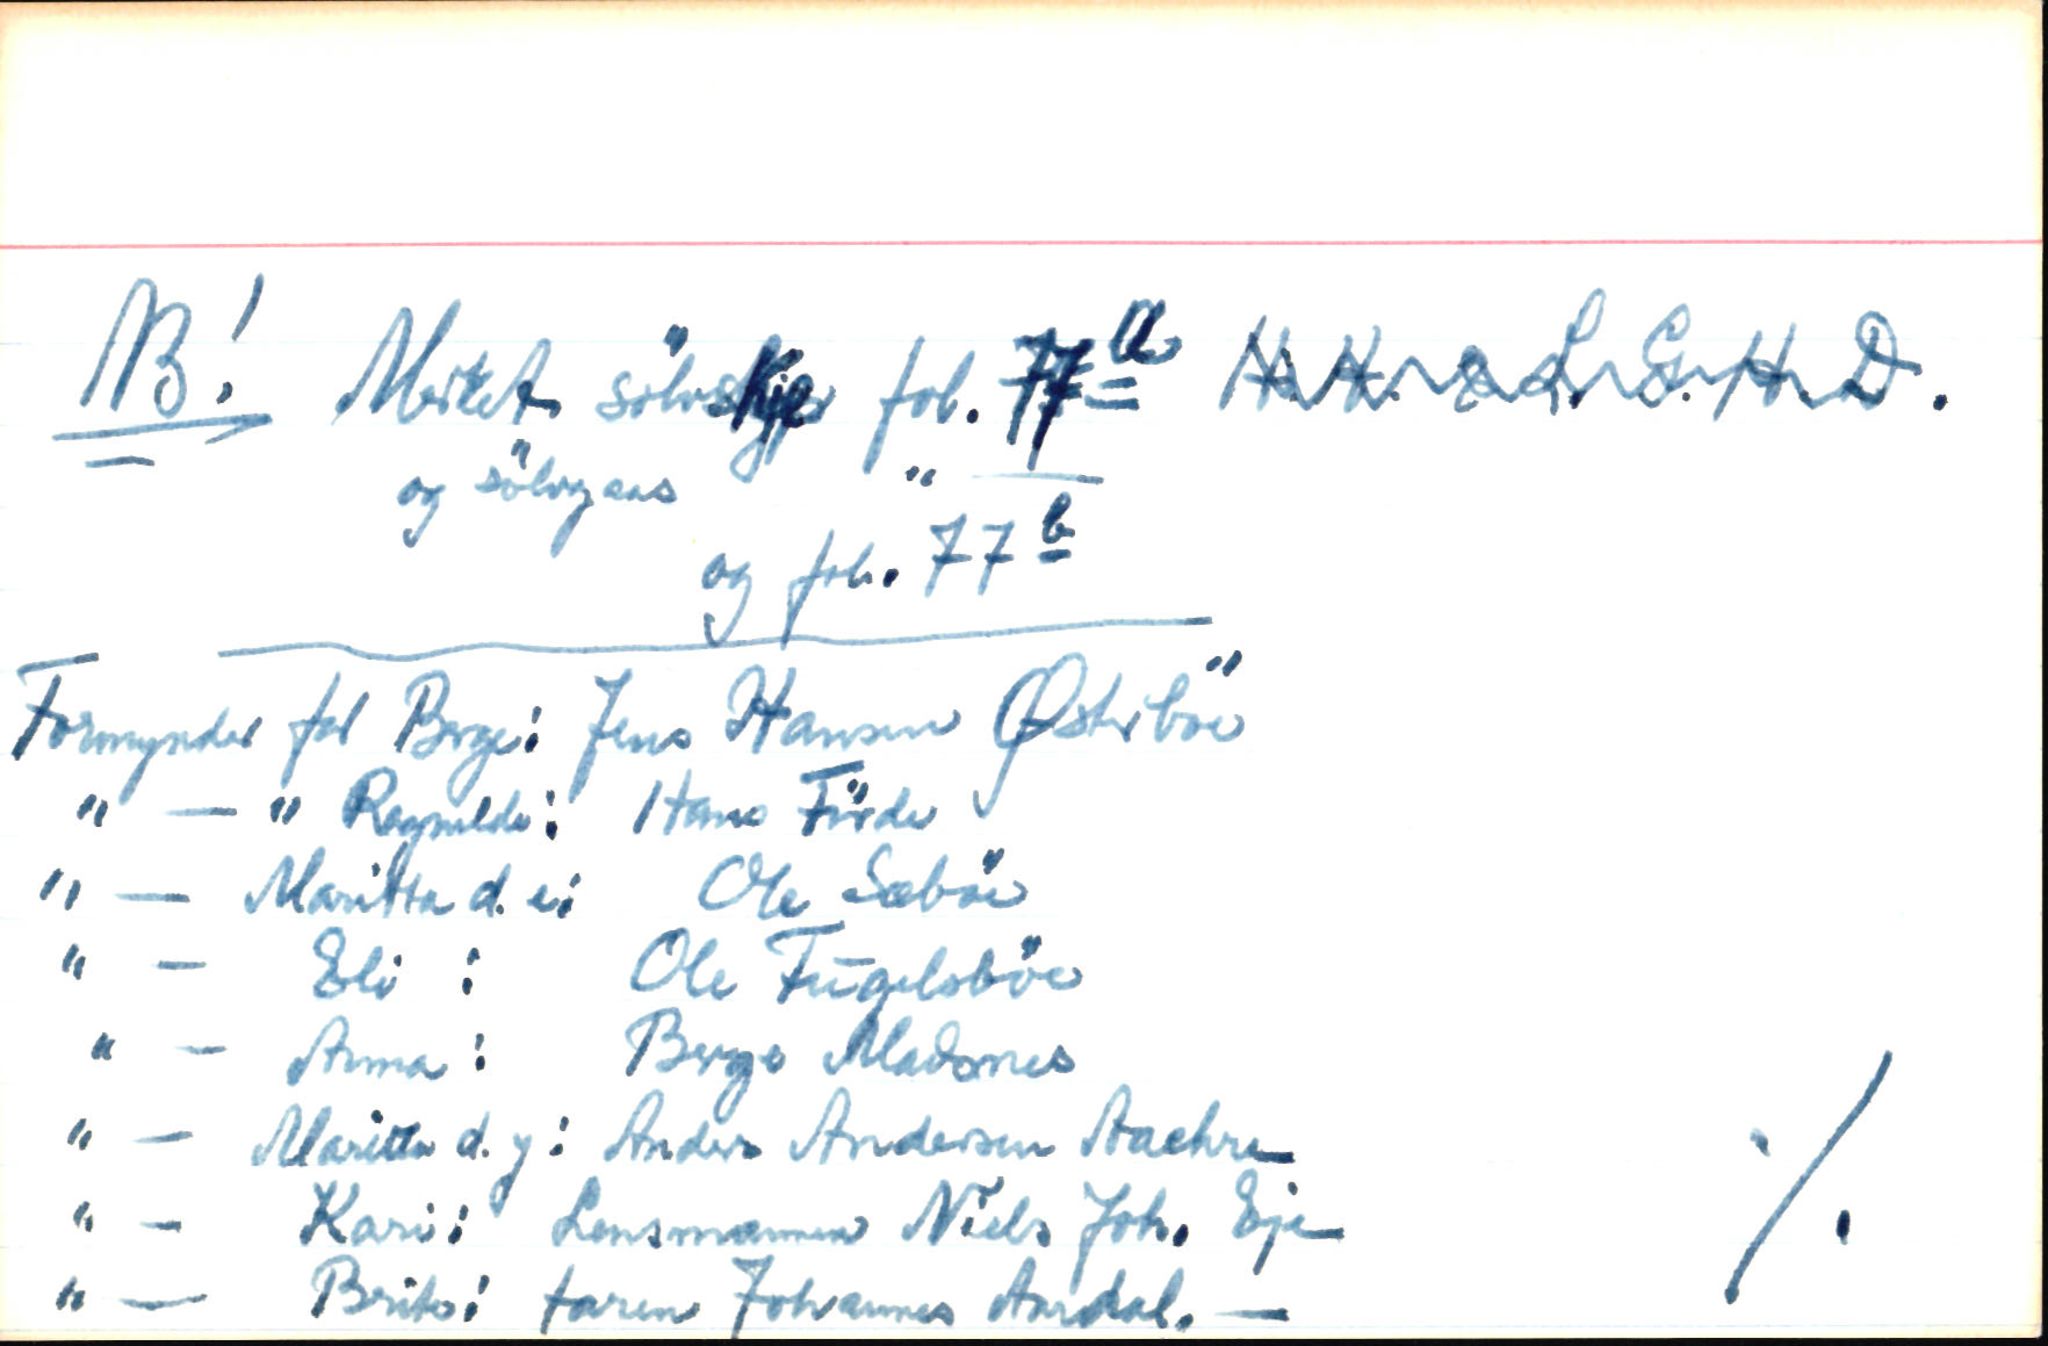 NB! Merket sölvskje fol. 77a
og sölvgaas "
og fol. 77b
Formynder for Børge: Jens Hansen Østerböe
" — " Ragnilde: Hans Förde
" — Maritta d. e: Ole Sæböe
" — Eli : Ole Fugelsböe
" — Anna : Børge Madsnes
" — Maritta d. y: Anders Andersen Aachre
" — Kari: Lensmannen Niels Joh. Eje
" — Brite: faren Johannes Aardal. —
./.